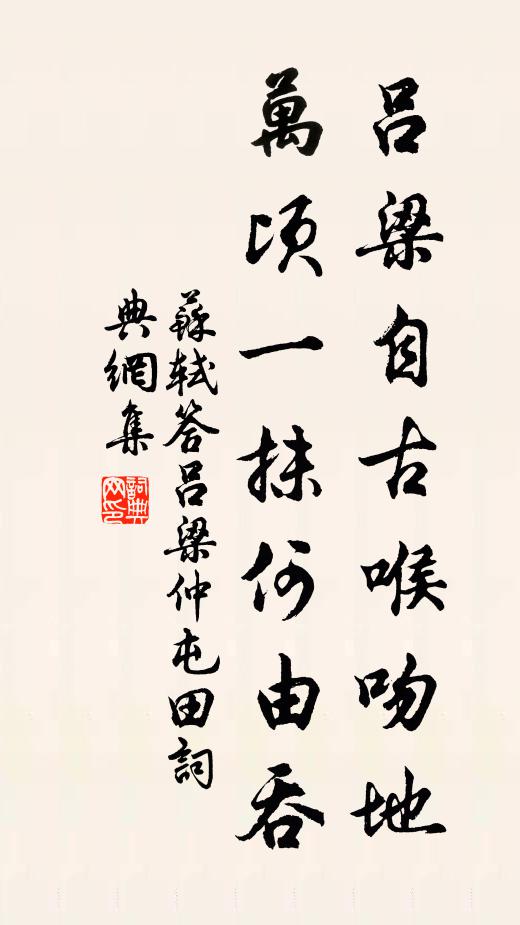 吕梁自古喉吻地
萬頃一抹何由吞
蘇軾答吕梁仲屯田詞
典網集
詞典网印